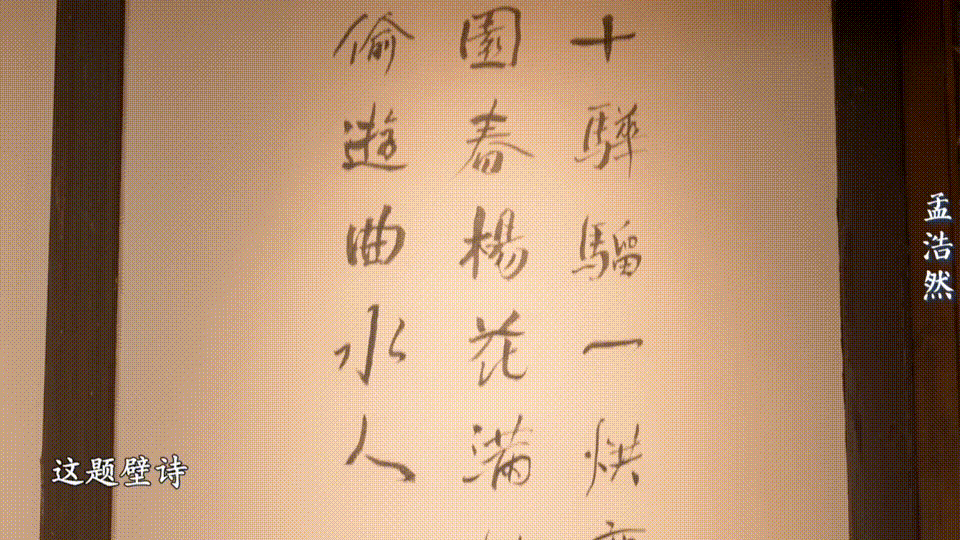 十驊騮一烘
園春楊花滿
偷遊曲水人
孟浩然
这题壁诗